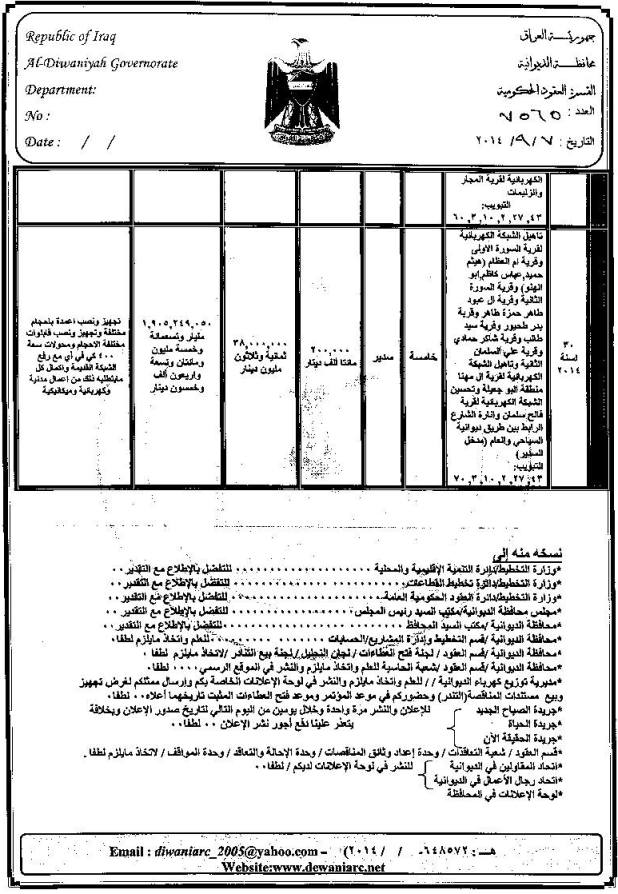 Republic of Iraq
Al-Diwaniyah Governorate
Department:
No :
Date : / /
جمهورية العراق
محافظة الديوانية
القسم: العقود الحكومية
العدد: ٧٥٦٥
التاريخ: ٢٠١٤/٩/٧
الكهربائية لقرية المجار
والزليمات
التبويب:
٤٣, ٢٧, ٢, ١٠, ٣, ٦٠
٣٠
لسنة
٢٠١٤
تاهيل الشبكة الكهربائية
لقرية السورة الاولى
وقرية ام العظام (هيثم
حميد, عباس كاظم, ابو
الهنو) وقرية السورة
الثانية وقرية ال عبود
طاهر حمزة طاهر وقرية
بدر طحيور وقرية سيد
طالب وقرية شاكر حمادي
وقرية علي السلمان
الثانية وتاهيل الشبكة
الكهربائية لقرية ال مهنا
منطقة البو جعيلة وتحسين
الشبكة الكهربائية لقرية
فالح سلمان وانارة الشارع
الرابط بين طريق ديوانية
السياحي والعام (مدخل
السدير)
التبويب:
٤٣, ٢٧, ٢, ١٠, ٣, ٧٠
خامسة
سدير
٢٠٠,٠٠٠
مائتا الف دينار
٣٨,٠٠٠,٠٠٠
ثمانية وثلاثون
مليون دينار
١,٩٠٥,٢٤٩,٠٥٠
مليار وتسعمائة
وخمسة مليون
ومائتان وتسعة
واربعون الف
وخمسون دينار
تجهيز ونصب اعمدة باحجام
مختلفة وتجهيز ونصب قابلوات
مختلفة الاحجام ومحولات سعة
٤٠٠ كي في أي مع رفع
الشبكة القديمة واكمال كل
مايتطلبه ذلك من اعمال مدنية
وكهربائية وميكانيكية
نسخه منه إلى
*وزارة التخطيط/دائرة التنمية الإقليمية والمحلية ٠٠٠٠٠٠٠٠٠٠٠٠٠٠ للتفضل بالإطلاع مع التقدير٠٠
*وزارة التخطيط/دائرة تخطيط القطاعات٠٠٠٠٠٠٠٠٠٠٠٠٠٠٠٠ للتفضل بالإطلاع مع التقدير٠٠
*وزارة التخطيط/دائرة العقود الحكومية العامة٠٠٠٠٠٠٠٠٠٠٠٠ للتفضل بالإطلاع مع التقدير٠٠
*مجلس محافظة الديوانية/مكتب السيد رئيس المجلس٠٠٠٠٠٠٠٠٠ للتفضل بالإطلاع مع التقدير٠٠
*محافظة الديوانية / مكتب السيد المحافظ ٠٠٠٠٠٠٠٠٠٠٠٠ للتفضل بالإطلاع مع التقدير٠٠
*محافظة الديوانية /قسم التخطيط وإدارة المشاريع/الحسابات ٠٠٠٠٠٠ للعلم واتخاذ مايلزم لطفا٠
*محافظة الديوانية /قسم العقود / لجنة فتح العطاءات / لجان التحليل/ لجنة بيع التنادر /لاتخاذ مايلزم لطفا ٠
*محافظة الديوانية /قسم العقود /شعبة الحاسبة للعلم واتخاذ مايلزم والنشر في الموقع الرسمي٠٠٠٠ لطفا
*مديرية توزيع كهرباء الديوانية / / للعلم واتخاذ مايلزم والنشر في لوحة الإعلانات الخاصة بكم وإرسال ممثلكم لغرض تجهيز
وبيع مستندات المناقصة(التندر) وحضوركم في موعد المؤتمر وموعد فتح العطاءات المثبت تاريخهما أعلاه٠٠ لطفا
*جريدة الصباح الجديد للإعلان والنشر مرة واحدة وخلال يومين من اليوم التالي لتاريخ صدور الإعلان وبخلافة
*جريدة الحياة يتعذر علينا دفع أجور نشر الإعلان ٠٠ لطفا٠٠
*جريدة الحقيقة الآن
*قسم العقود / شعبة التعاقدات / وحدة إعداد وثائق المناقصات / وحدة الإحالة والتعاقد / وحدة المواقف / لاتخاذ مايلزم لطفا .
*اتحاد المقاولين في الديوانية للنشر في لوحة الإعلانات لديكم / لطفا٠٠
*اتحاد رجال الأعمال في الديوانية
*لوحة الإعلانات في المحافظة
هـ: ٦٤٨٥٧٢ - / / ٢٠١٤) – Email : diwaniarc_2005@yahoo.com
Website:www.dewaniarc.net